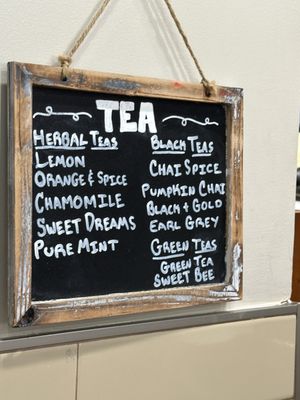 TEA
HERBAL TEAS
LEMON
ORANGE & SPICE
CHAMOMILE
SWEET DREAMS
PURE MINT
BLACK TEAS
CHAI SPICE
PUMPKIN CHAI
BLACK & GOLD
EARL GREY
GREEN TEAS
GREEN TEA
SWEET BEE